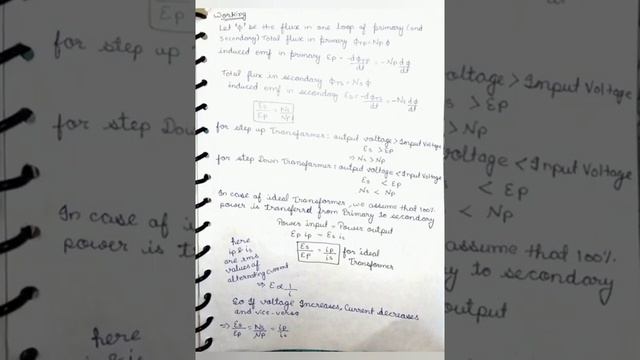 Working
Let 'φ' be the flux in one loop of primary (and
secondary) Total flux in primary φTP = NP φ
induced emf in primary EP = -dφTP/dt = -NP dφ/dt
Total flux in secondary φTS = NS φ
induced emf in secondary ES = -dφTS/dt = -NS dφ/dt
ES/EP = NS/NP
for step up Transformer: output voltage > Input Voltage
ES > EP
⇒ NS > NP
for step Down Transformer: output voltage < Input Voltage
ES < EP
NS < NP
In case of ideal Transformer, we assume that 100%
power is transferred from Primary to secondary
Power input = Power output
EP iP = ES iS
ES/EP = iP/iS for ideal
Transformer
here
iP & iS
are rms
values of
alternating current
⇒ E ∝ 1/i
So If voltage Increases, Current decreases
and vice-versa
⇒ ES/EP = NS/NP = iP/iS
for step up
for step Down
In case of
power is
here
iP & iS
voltage > Input Voltage
> EP
> NP
< Input Voltage
< EP
< NP
assume that 100%
to secondary
output